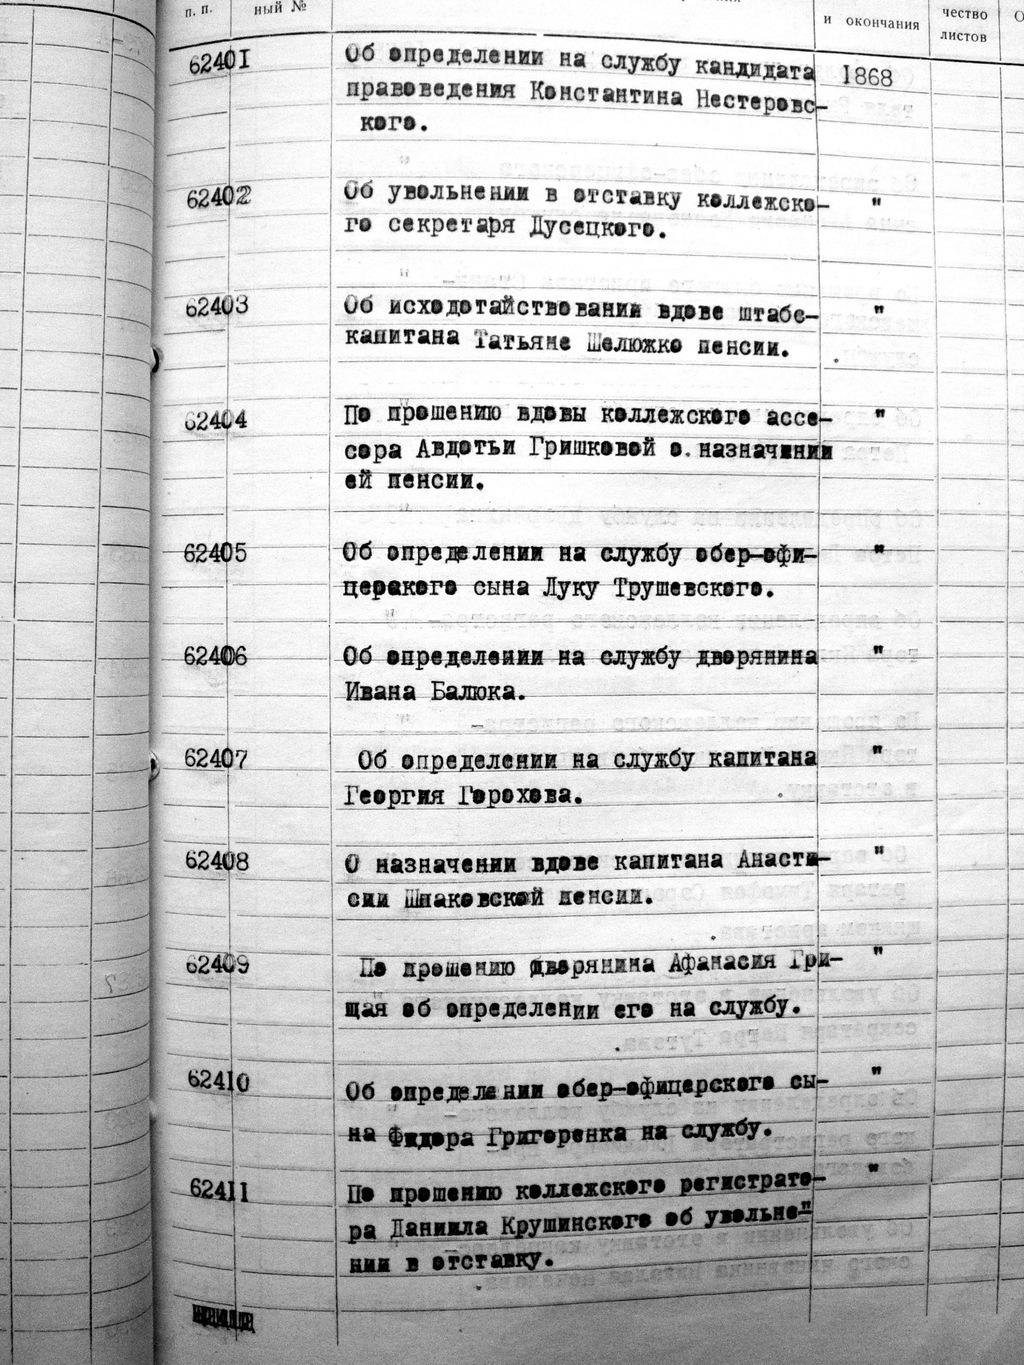 п. п.
ный №
и окончания
чество
листов
62401 Об определении на службу кандидата 1868
правоведения Константина Нестеровс-
кого.
62402 Об увольнении в отставку коллежско- "
го секретаря Дусецкого.
62403 Об исходотайствовании вдове штабс- "
капитана Татьяне Шелюжко пенсии.
62404 По прошению вдовы коллежского ассе- "
сора Авдотьи Гришковой о назначении
ей пенсии.
62405 Об определении на службу обер-офи- "
церского сына Луку Трушевского.
62406 Об определении на службу дворянина "
Ивана Балюка.
62407 Об определении на службу капитана "
Георгия Горохова.
62408 О назначении вдове капитана Анаста- "
сии Шпаковской пенсии.
62409 По прошению дворянина Афанасия Гри- "
щая об определении его на службу.
62410 Об определении обер-офицерского сы- "
на Фидора Григоренка на службу.
62411 По прошению коллежского регистрато- "
ра Даниила Крушинского об увольне-
нии в отставку.